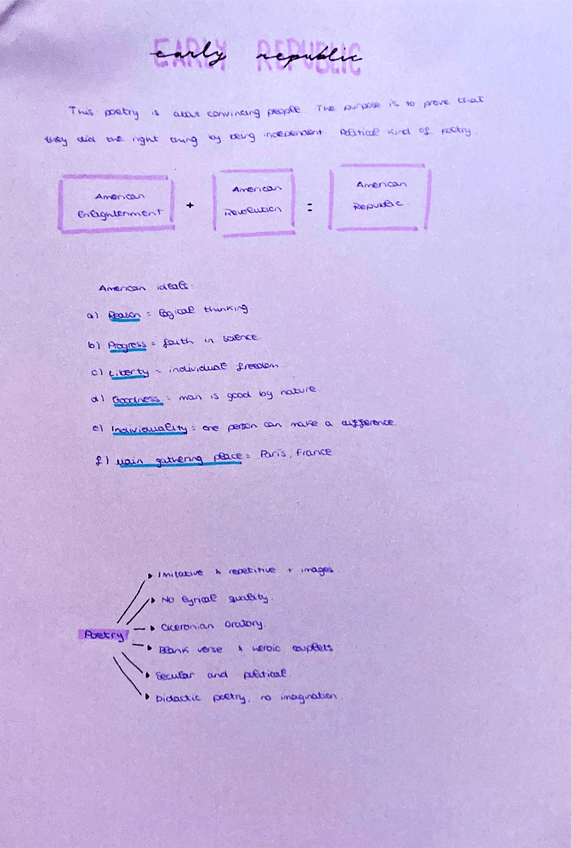 EARLY REPUBLIC
early republic
This poetry is about convincing people. The purpose is to prove that
they did the right thing by being independent. Political kind of poetry.
American Enlightenment + American Revolution = American Republic
American ideals:
a) Reason = logical thinking
b) Progress = faith in science.
c) Liberty = individual freedom
d) Goodness = man is good by nature.
e) Individuality = one person can make a difference
f) Main gathering place = Paris, France
Poetry
Imitative & repetitive + images.
No lyrical quality.
Ciceronian oratory.
Blank verse & heroic couplets
Secular and political.
Didactic poetry, no imagination